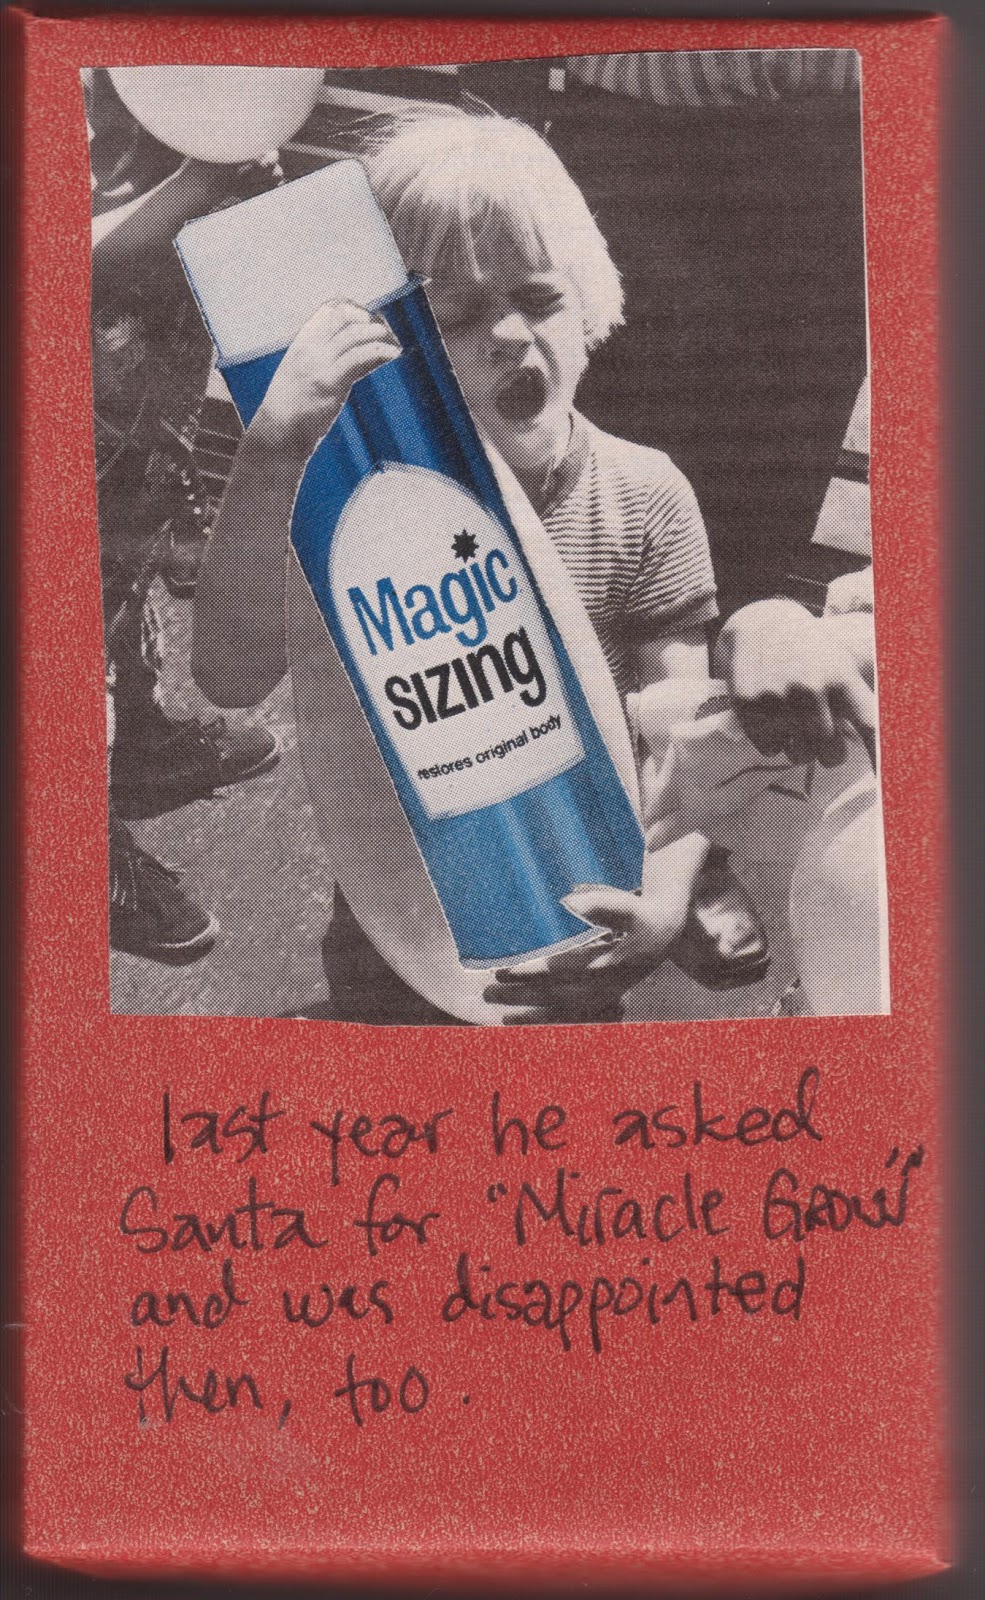 Magic
sizing
restores original body
last year he asked
Santa for "Miracle Grow"
and was disappointed
then, too.